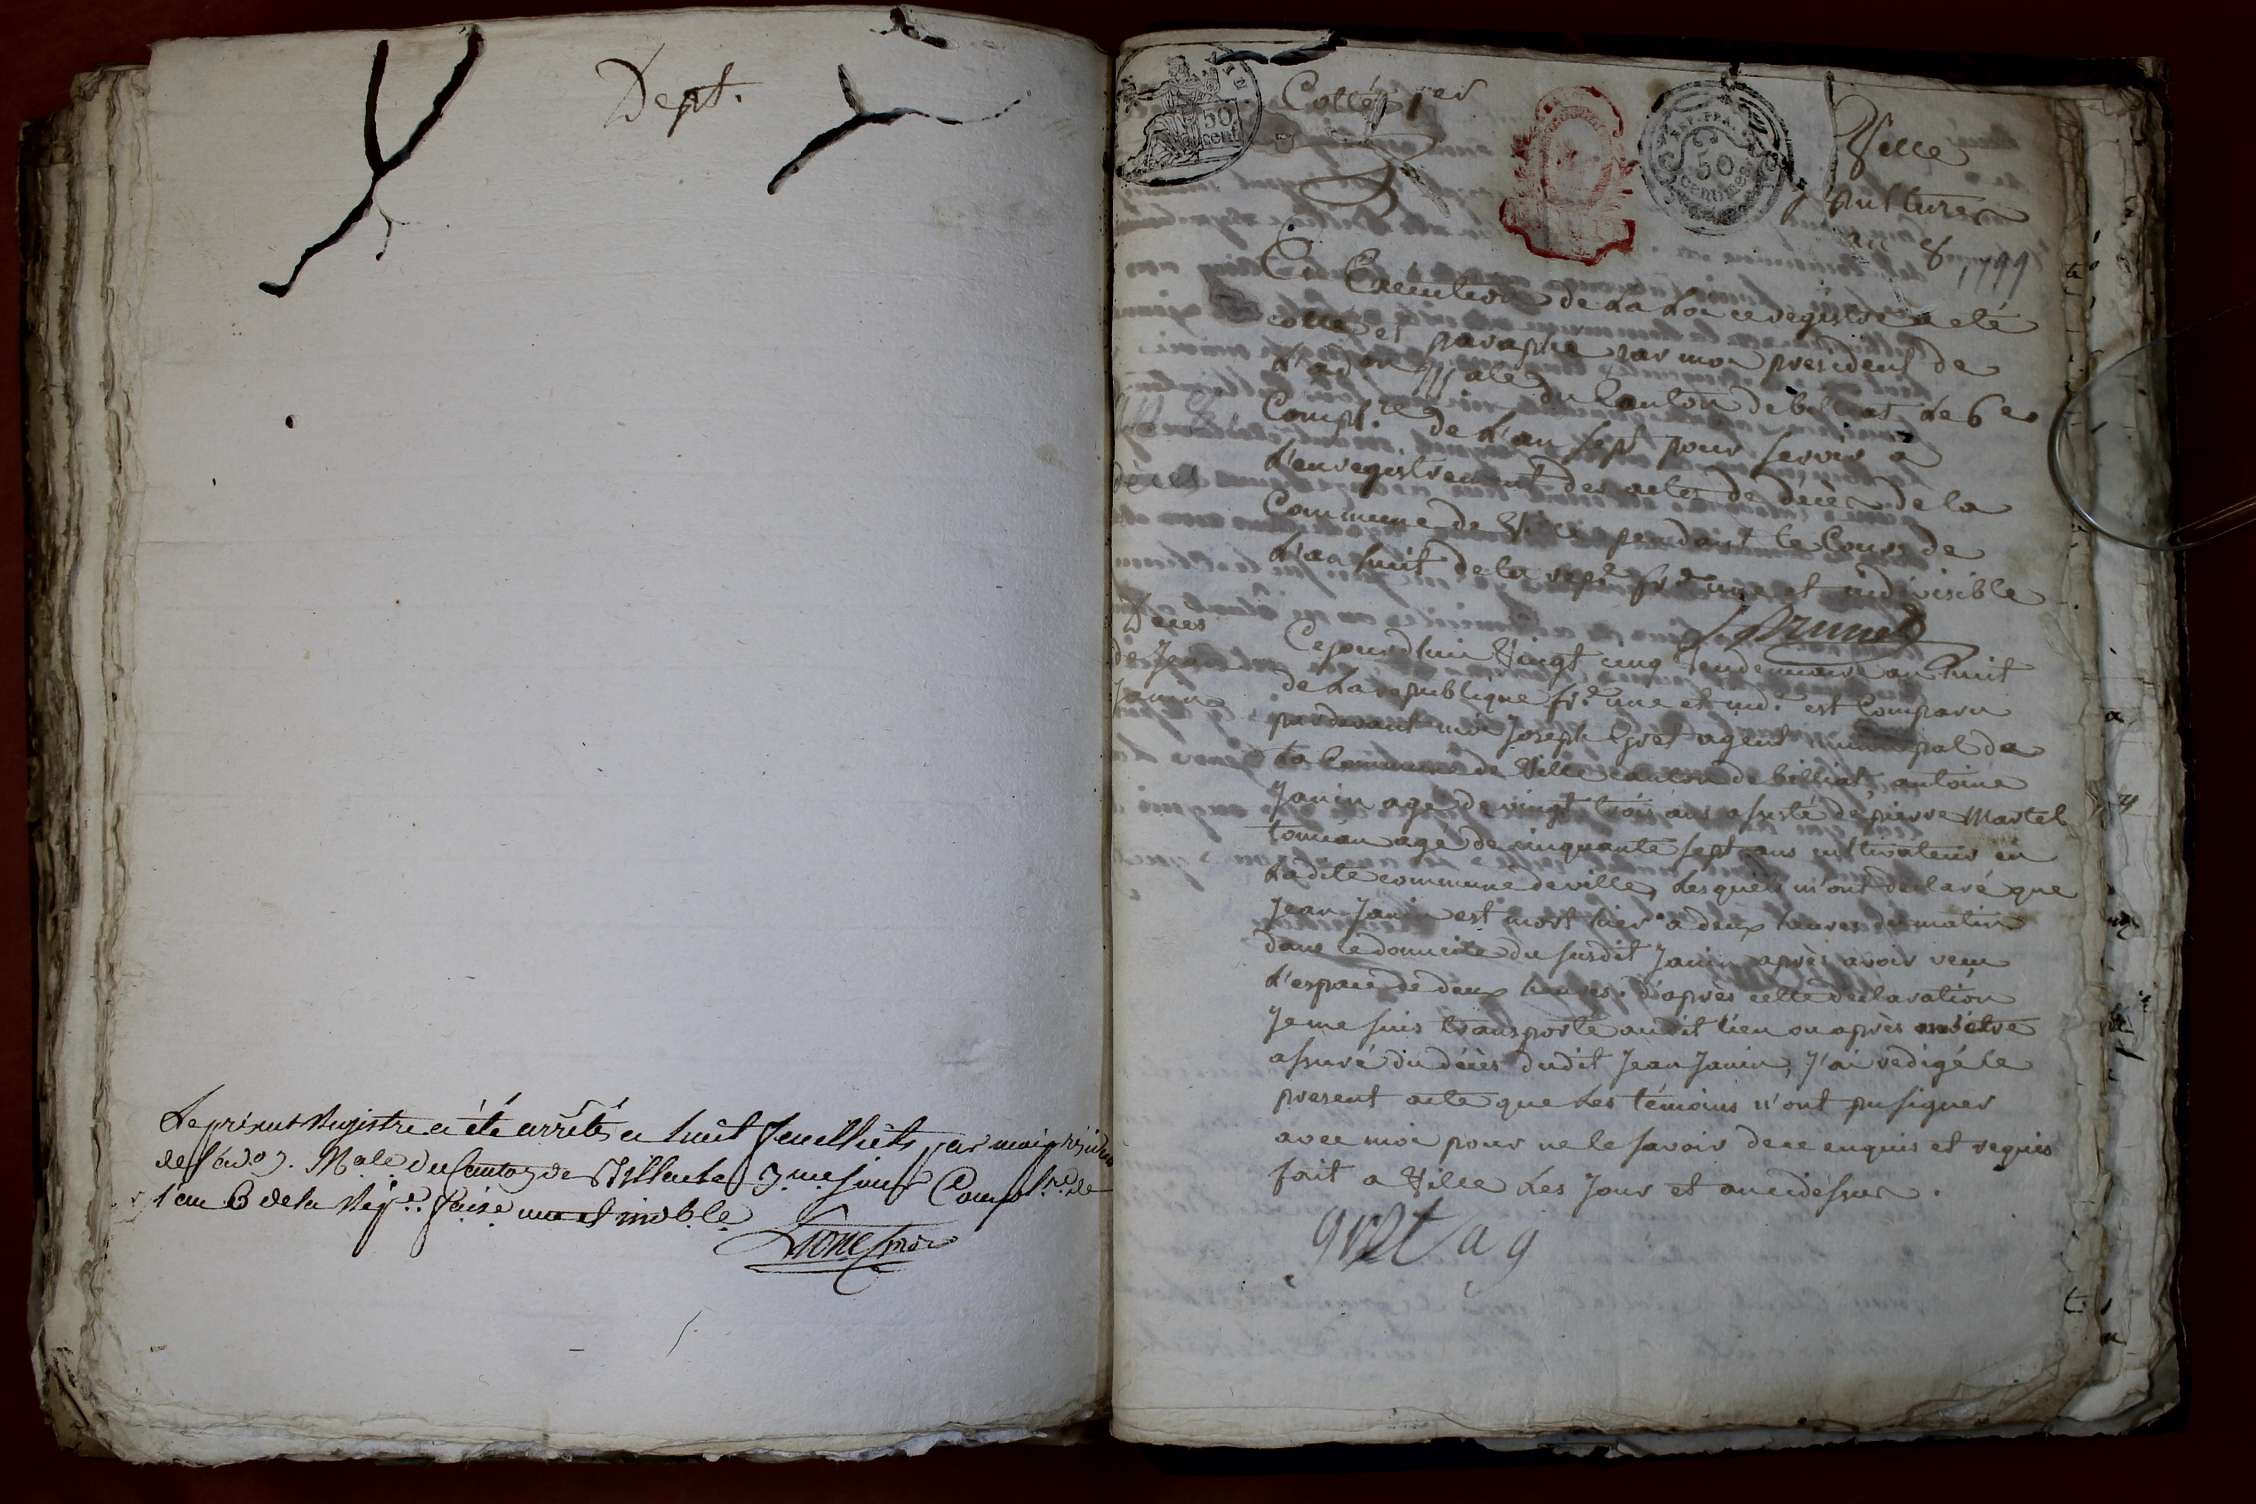 Dept.
Le present Registre a été arrêtés a huit feuillets par moi président
de l'ad.on M.ale du Canton de Billiat le jour Compl.re de
l'an 6 de la Rep.e une et indible
Cotté 1er
50 cent
REP. FRA.
50 centimes
Ville
Sepultures
an 8 1799
En Execution de La Loi ce registre a eté
cotté et paraphé par moi president de
L'adon male du Canton de billiat Le 6e
Compl.re de L'an sept pour servir a
L'enregistrement des actes de décès de la
Commune de Ville pendant le Cours de
L'an huit de la repe fre une et indivisible
Brunet
Décès
de Jean
Janin
Cejourdhui Vingt cinq Vendemiaire an huit
de La republique fre une et ind. est Comparu
pardevant moi Joseph Gret agent municipal de
La Commune de Ville canton de billiat, antoine
Janin agé de vingt trois ans assisté de pierre Martel
tomian agé de cinquante sept ans cultivateurs en
Ladite commune de ville, Lesquels m'ont declaré que
Jean Janin est mort hier a deux heures du matin
dans le domicile du susdit Janin après avoir vecu
L'espace de deux heures. d'après cette declaration
Je me suis transporté audit lieu ou après m'être
assuré du décès dudit Jean Janin, J'ai redigé le
present acte que Les témoins n'ont pu signer
avec moi pour ne le savoir de ce enquis et requis
fait a Ville Les Jour et an cidessus.
gret ag